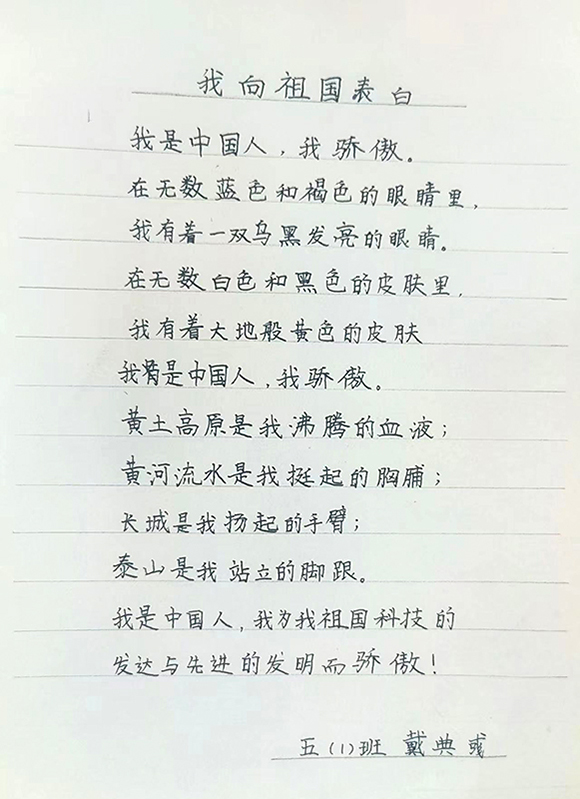 我向祖国表白
我是中国人，我骄傲。
在无数蓝色和褐色的眼睛里，
我有着一双乌黑发亮的眼睛。
在无数白色和黑色的皮肤里，
我有着大地般黄色的皮肤
我是中国人，我骄傲。
黄土高原是我沸腾的血液；
黄河流水是我挺起的胸脯；
长城是我扬起的手臂；
泰山是我站立的脚跟。
我是中国人，我为我祖国科技的
发达与先进的发明而骄傲！
五（1）班 戴典彧